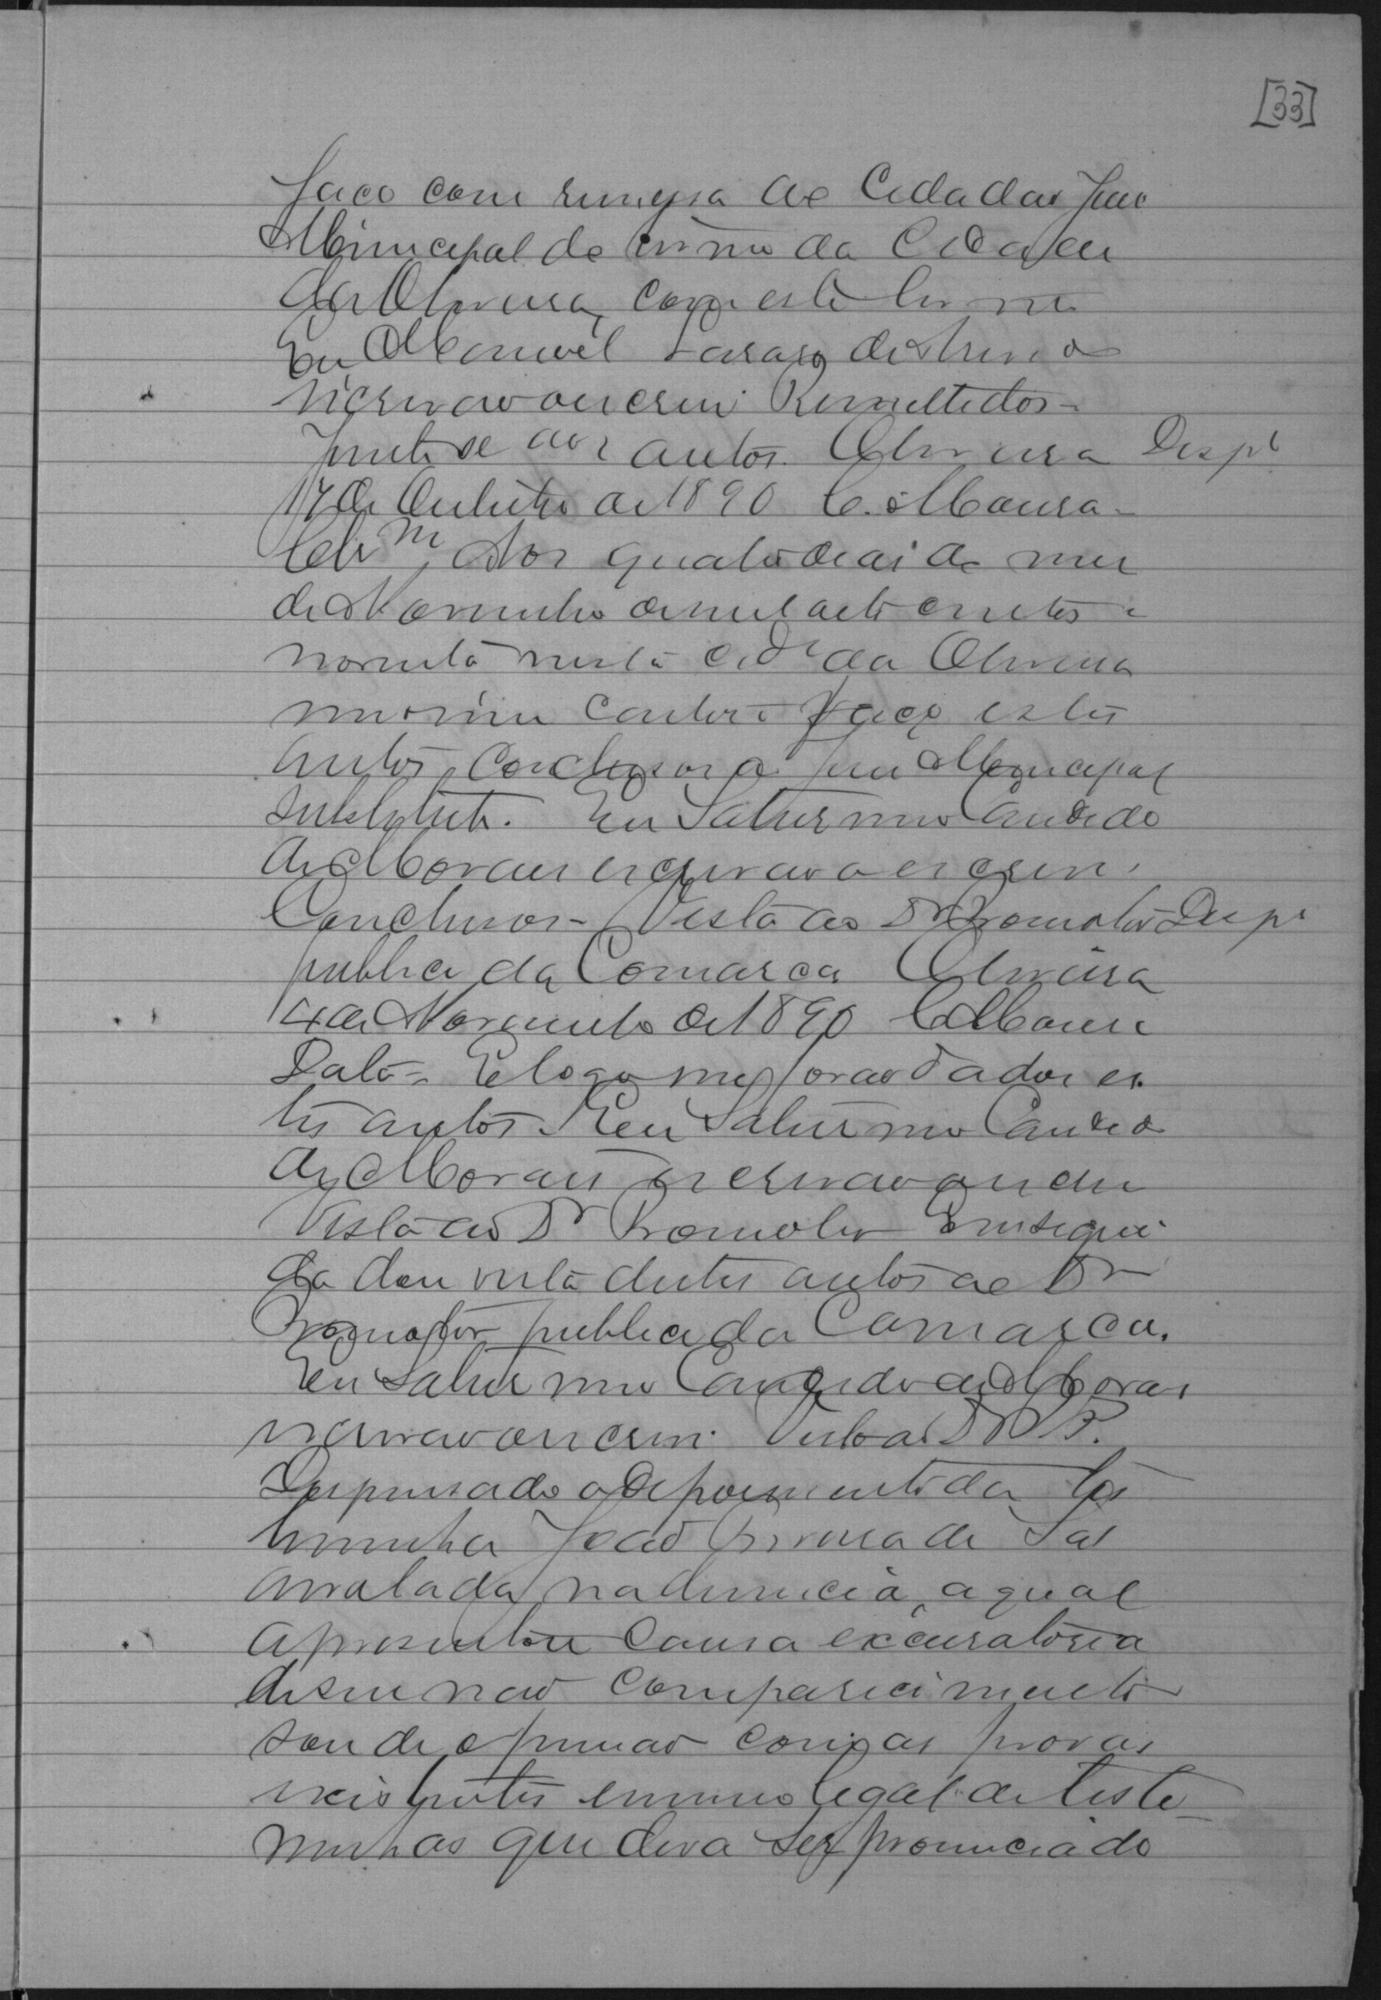 [33]
Faço com remessa ao Cidadão Juiz
Municipal do termo da Cidade
da Oliveira, com este termo
Eu Manoel Lazaro
escrivão escrevi. Remettidos-
Junte se aos autos. Oliveira Despº
17 de Outubro de 1890 C. Moura-
Clsm Aos quatro dias do mez
de Novembro de mil oito centos e
noventa nesta cide da Oliveira
em meu Cartorio faço estes
autos Conclusos a Juiz Municipal
substituto. Eu Saturnino Candido
de Moraes escrivão o escrevi.
Conclusos- Vista ao Dr Promotor Despº
publico da Comarca Oliveira
4 de Novembro de 1890 C Moura
Data- E logo me forão dados es
tes autos. Eu Saturnino Candido
de Moraes escrivão escrevi
Vista ao Dr Promotor Em segui
da dou vista destes autos ao Dr
Promotor publico da Comarca.
Eu Saturnino Candido de Moraes
escrivão escrevi. Vista ao Dr P. P.
Dispensado o depoimento da tes
temunha João de Sal
arrolada na denuncia, a qual
apresentou causa excusatoria
de seu não comparecimento
sou de opinião com as provas
existentes em numero legal de teste
munhas que deva ser pronunciado